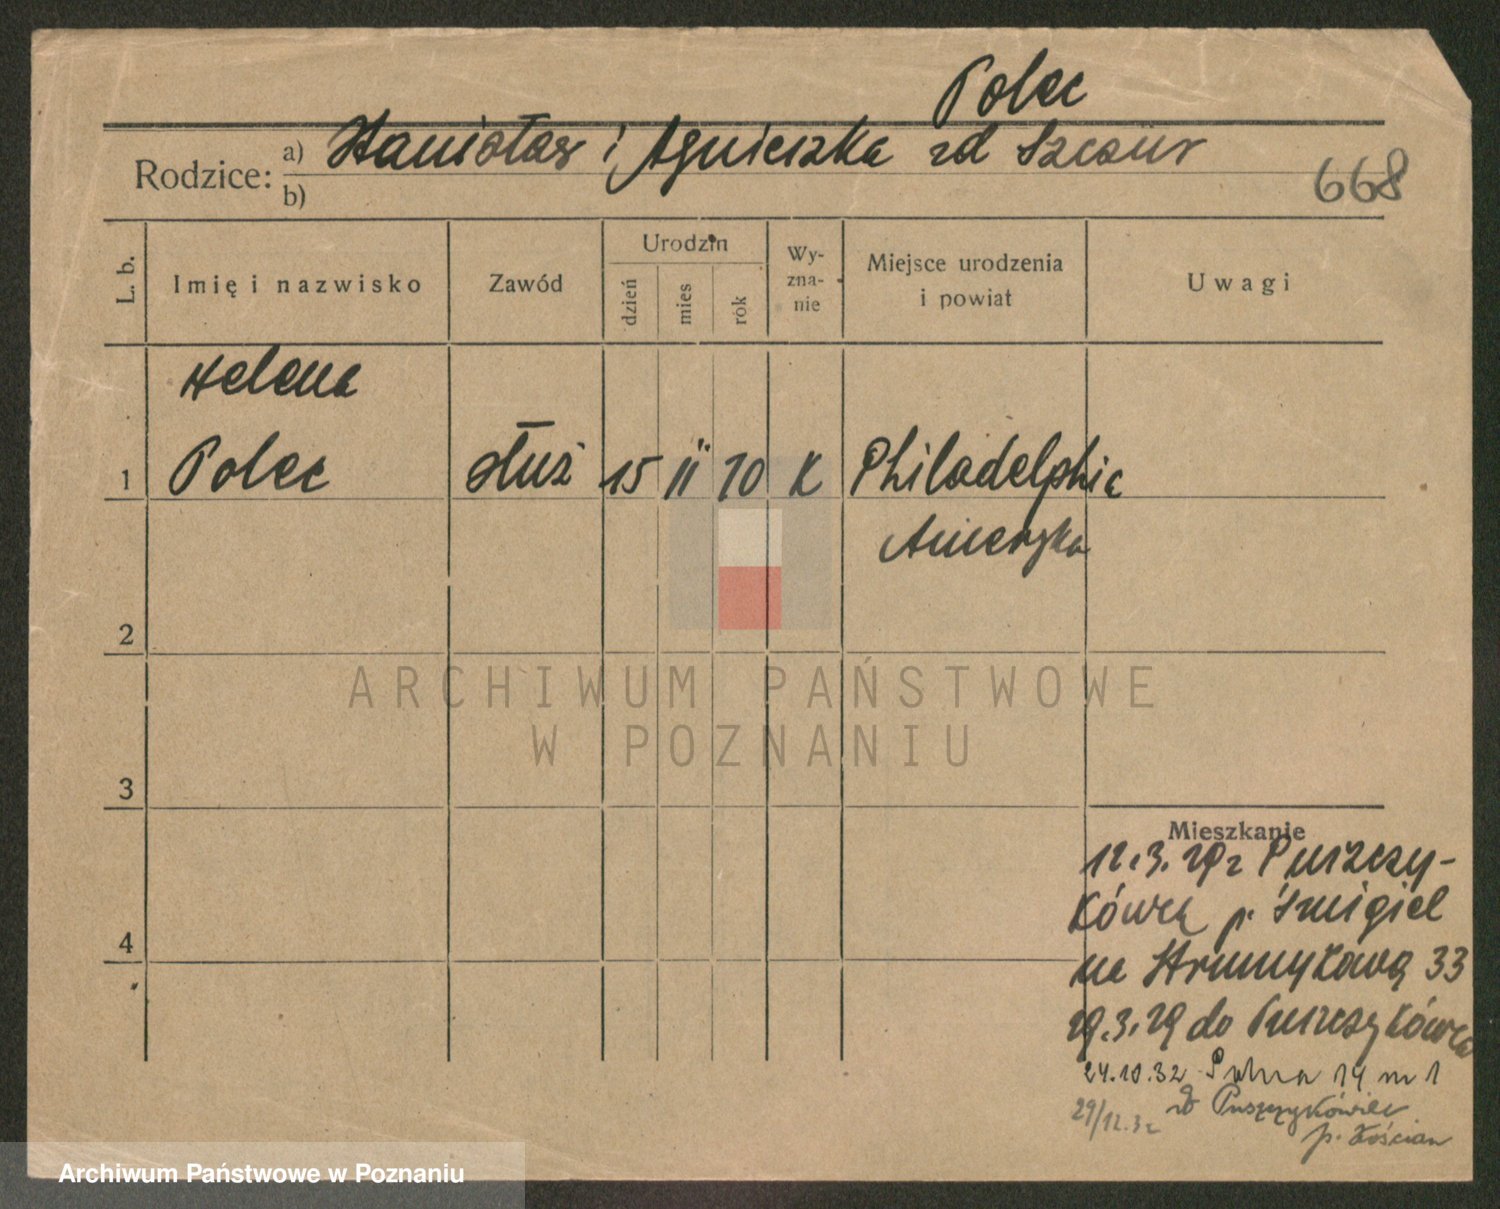 Polec
Rodzice: a) Stanisław i Agnieszka zd
b)
668
L. b.
Imię i nazwisko
Zawód
Urodzin
dzień
mies
rok
Wy-
zna-
nie
Miejsce urodzenia
i powiat
Uwagi
Helena
1 Polec służ 15 II 10 K Philadelphia
Ameryka
2
3
4
Mieszkanie
12.3.29 z Puszczy-
kówca p. Śmigiel
na Strumykową 33
29.3.29 do Puszczykówca
24.10.32 14 m 1
29/12.32 do Puszczykówiec
p. Kościan
ARCHIWUM PAŃSTWOWE
W POZNANIU
Archiwum Państwowe w Poznaniu